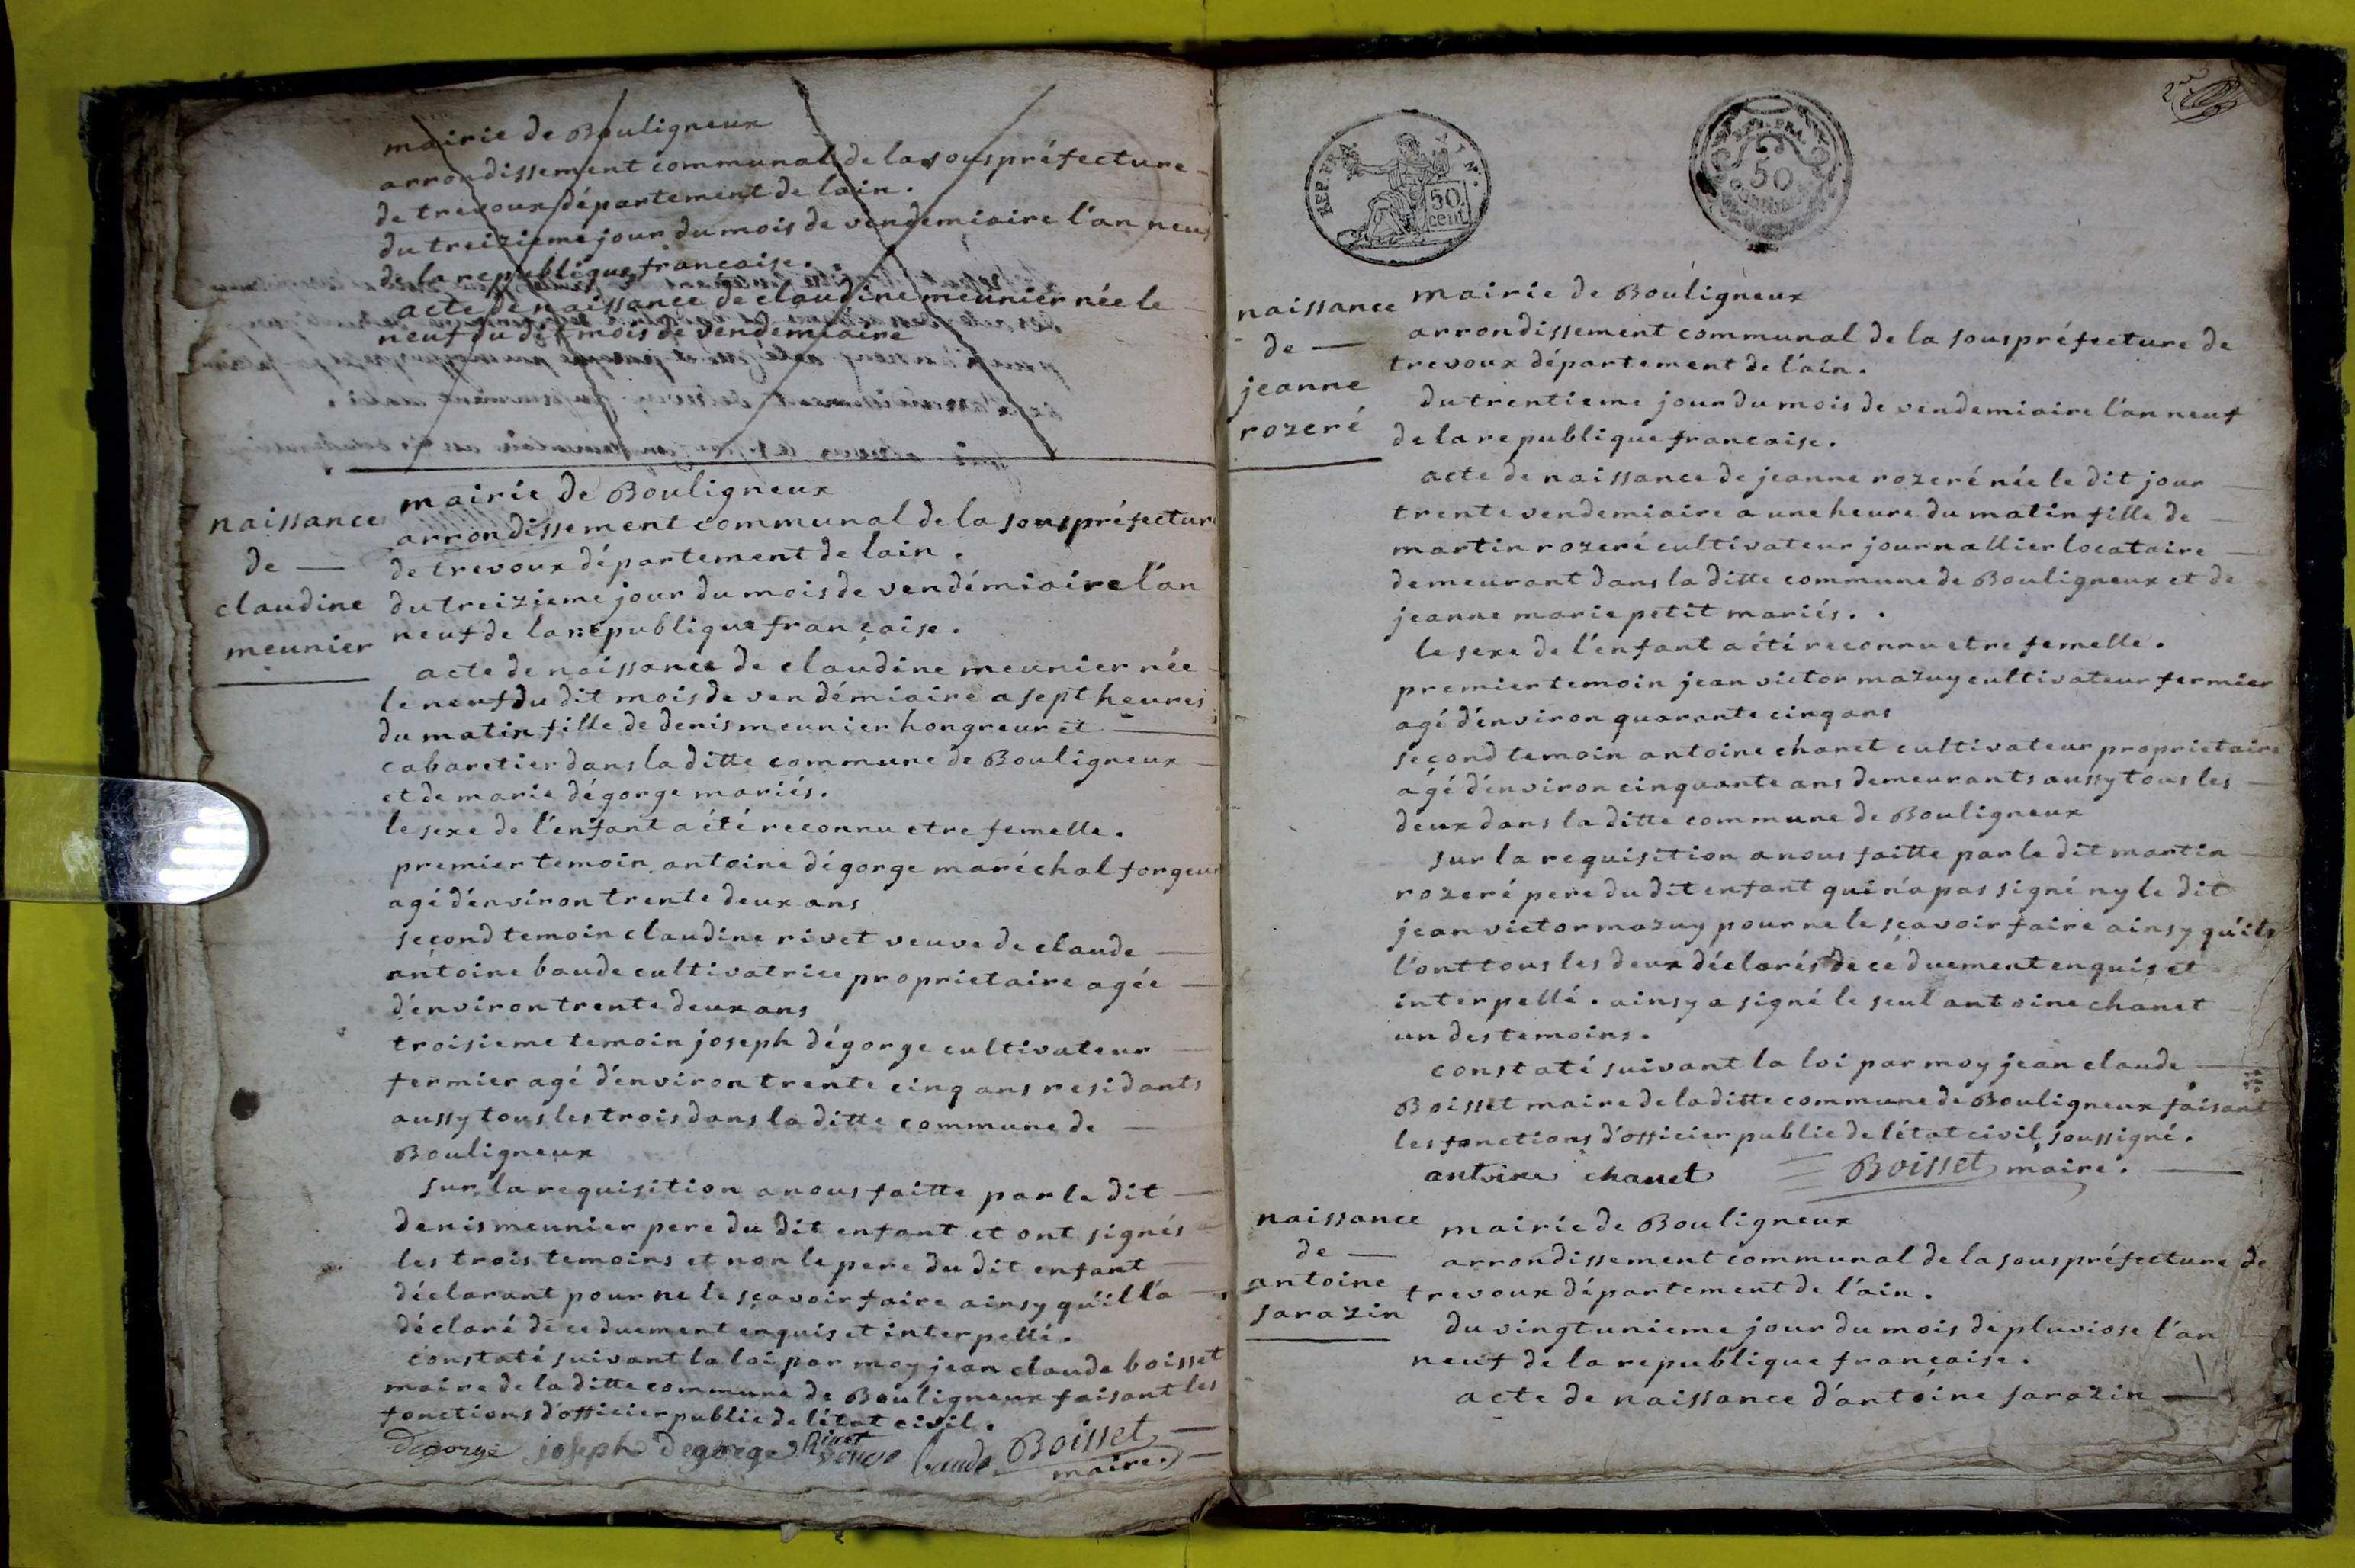 mairie de Bouligneux
arrondissement communal de la souspréfecture
de trevoux département de lain.
du treizieme jour du mois de vendemiaire l'an neuf
de la republique francaise.
acte de naissance de claudine meunier née le
neuf du dit mois de vendemiaire
naissance
de
claudine
meunier
mairie de Bouligneux
arrondissement communal de la souspréfecture
de trevoux département de lain.
du treizieme jour du mois de vendémiaire l'an
neuf de la republique française.
acte de naissance de claudine meunier née
le neuf du dit mois de vendémiaire a sept heures
du matin fille de denis meunier hongreur et
cabaretier dans la ditte commune de Bouligneux
et de marie dégorge mariés.
le sexe de l'enfant a été reconnu etre femelle.
premier temoin antoine dégorge maréchal forgeur
agé d'énviron trente deux ans
second temoin claudine rivet veuve de claude
antoine baude cultivatrice proprietaire agée
d'énviron trente deux ans
troisieme temoin joseph dégorge cultivateur
fermier agé d'énviron trente cinq ans residants
aussy tous les trois dans la ditte commune de
Bouligneux
sur la requisition a nous faitte par le dit
denis meunier pere du dit enfant et ont signés
les trois temoins et non le pere du dit enfant
déclarant pour ne le sçavoir faire ainsy qu'il l'a
déclaré de ce duement enquis et interpellé.
constaté suivant la loi par moy jean claude boisset
maire de la ditte commune de Bouligneux faisant les
fonctions d'officier public de l'état civil.
degorge joseph degorge Rivet
veuve baude Boisset
maire.
REP. FRA.
50
cent
REP. FRA.
50
naissance
de
jeanne
rozeré
mairie de Bouligneux
arrondissement communal de la souspréfecture de
trevoux département de l'ain.
du trentieme jour du mois de vendemiaire l'an neuf
de la republique francaise.
acte de naissance de jeanne rozeré née le dit jour
trente vendemiaire a une heure du matin fille de
martin rozeré cultivateur journallier locataire
demeurant dans la ditte commune de Bouligneux et de
jeanne marie petit mariés.
le sexe de l'énfant a été reconnu etre femelle.
premier temoin jean victor mazuy cultivateur fermier
agé d'énviron quarante cinq ans
second temoin antoine chanet cultivateur proprietaire
agé d'énviron cinquante ans demeurants aussy tous les
deux dans la ditte commune de Bouligneux
sur la requisition a nous faitte par le dit martin
rozeré pere du dit enfant qui n'a pas signé ny le dit
jean victor mazuy pour ne le sçavoir faire ainsy qu'ils
l'ont tous les deux déclarés de ce duement enquis et
interpellé. ainsy a signé le seul antoine chanet
un des temoins.
constaté suivant la loi par moy jean claude
Boisset maire de la ditte commune de Bouligneux faisant
les fonctions d'officier public de l'état civil soussigné.
antoine chanet Boisset maire.
naissance
de
antoine
sarazin
mairie de Bouligneux
arrondissement communal de la souspréfecture de
trevoux département de l'ain.
du vingt unieme jour du mois de pluviose l'an
neuf de la republique française.
acte de naissance d'antoine sarazin